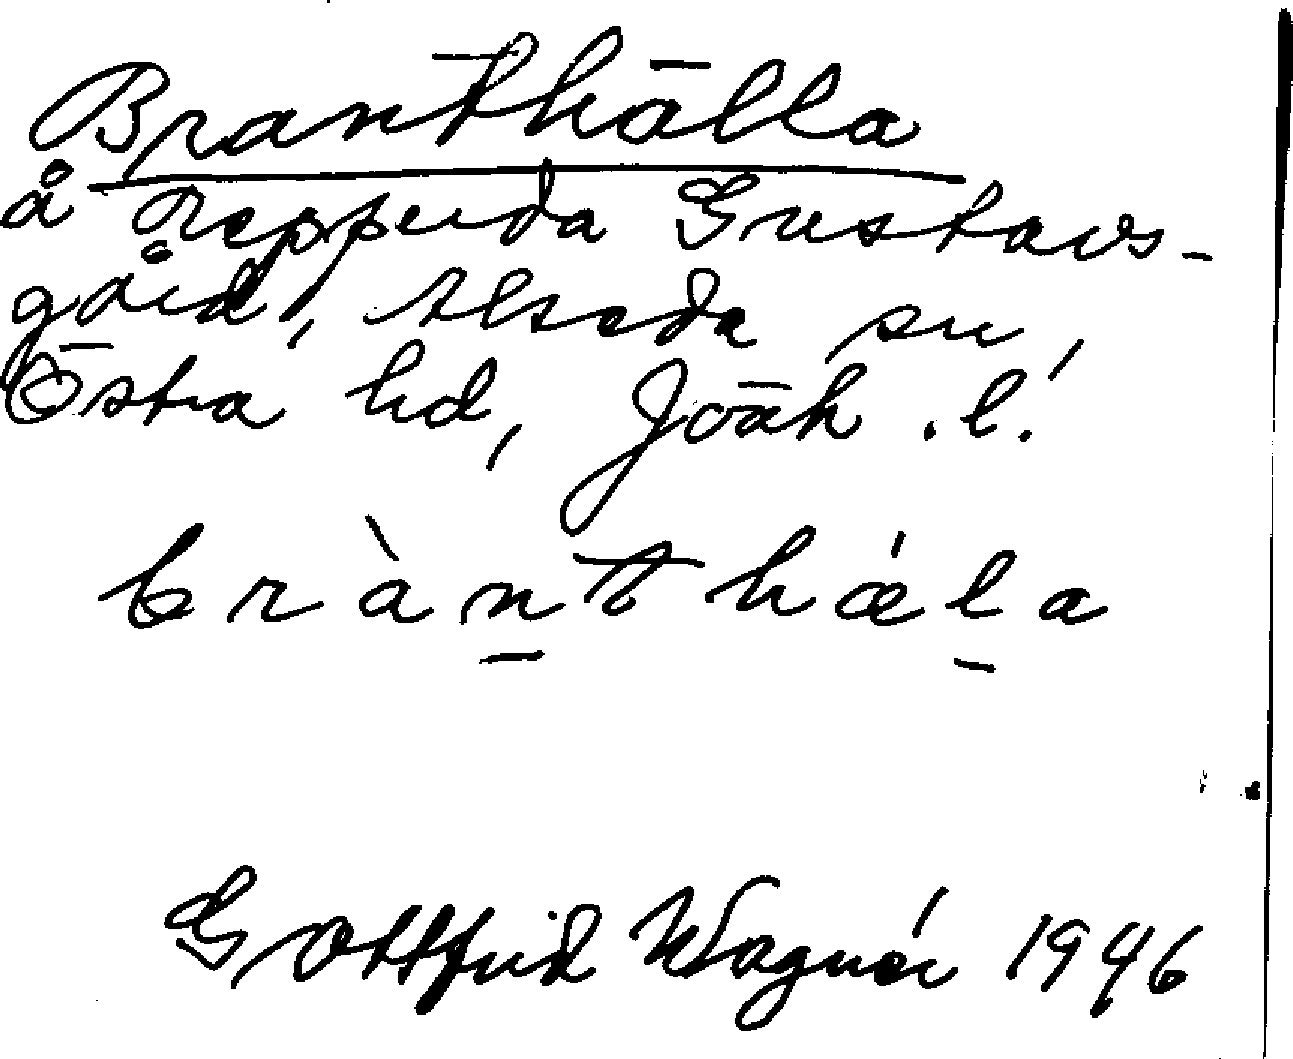 Branthälla
å Repperda Gustavs-
gård, Alseda sn,
Östra hd, Jönk. l.
brànthǽla
Gottfrid Wagnér 1946